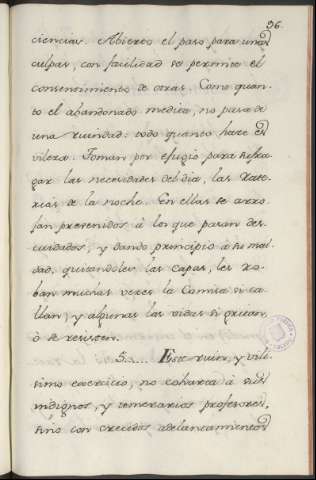 96.
ciencias. Abierto el paso para unas
culpas, con facilidad se permite el
consentimiento de otras. Como quan-
to el abandonado medita, no pasa de
una ruindad: todo quanto hace es
vileza. Toman por efugio para sufra-
gar las necesidades del dia, las rate-
rias de la noche. En ellas se arro-
jan prevenidos à los que pasan des-
cuidados, y dando principio à su mal-
dad, quitandoles las capas, les ro-
ban muchas veces la Camisa si ca-
llan, y algunas las vidas si gritan,
ò se resisten.
5.... Este ruin, y vili-
simo exercicio, no coharta à sus
indignos, y temerarios profesores,
sino con crecidos adelantamientos